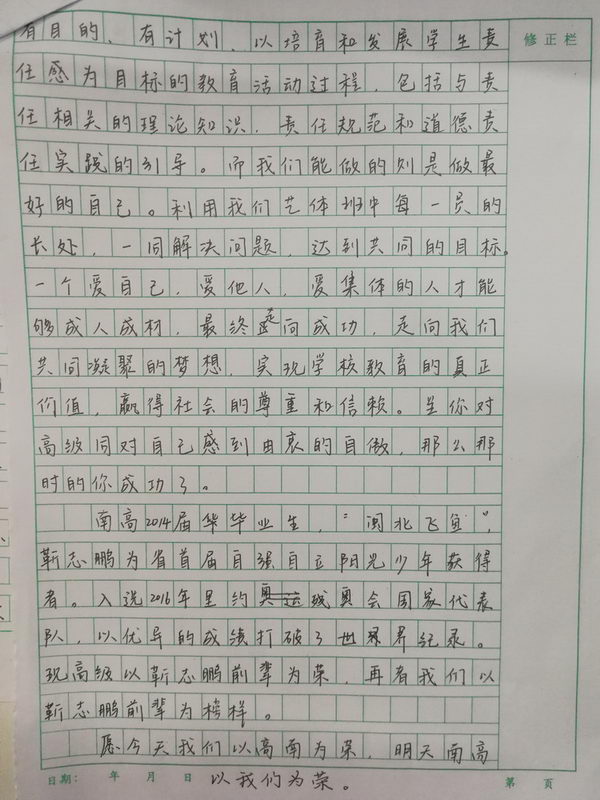 有目的、有计划，以培育和发展学生责
任感为目标的教育活动过程，包括与责
任相关的理论知识，责任规范和道德责
任实践的引导。而我们能做的则是做最
好的自己。利用我们艺体班中每一员的
长处，一同解决问题，达到共同的目标。
一个爱自己，爱他人，爱集体的人才能
够成人成材，最终走向成功，走向我们
共同凝聚的梦想，实现学校教育的真正
价值，赢得社会的尊重和信赖。当你对
高级同对自己感到由衷的自傲，那么那
时的你成功了。
南高2014届华毕业生，“闽北飞鱼”，
靳志鹏为省首届自强自立阳光少年获得
者。入选2016年里约残奥会国家代表
队，以优异的成绩打破了世界纪录。
现高级以靳志鹏前辈为荣，再看我们以
靳志鹏前辈为榜样。
愿今天我们以高南为荣，明天南高
以我们为荣。
修正栏
日期： 年 月 日
第 页